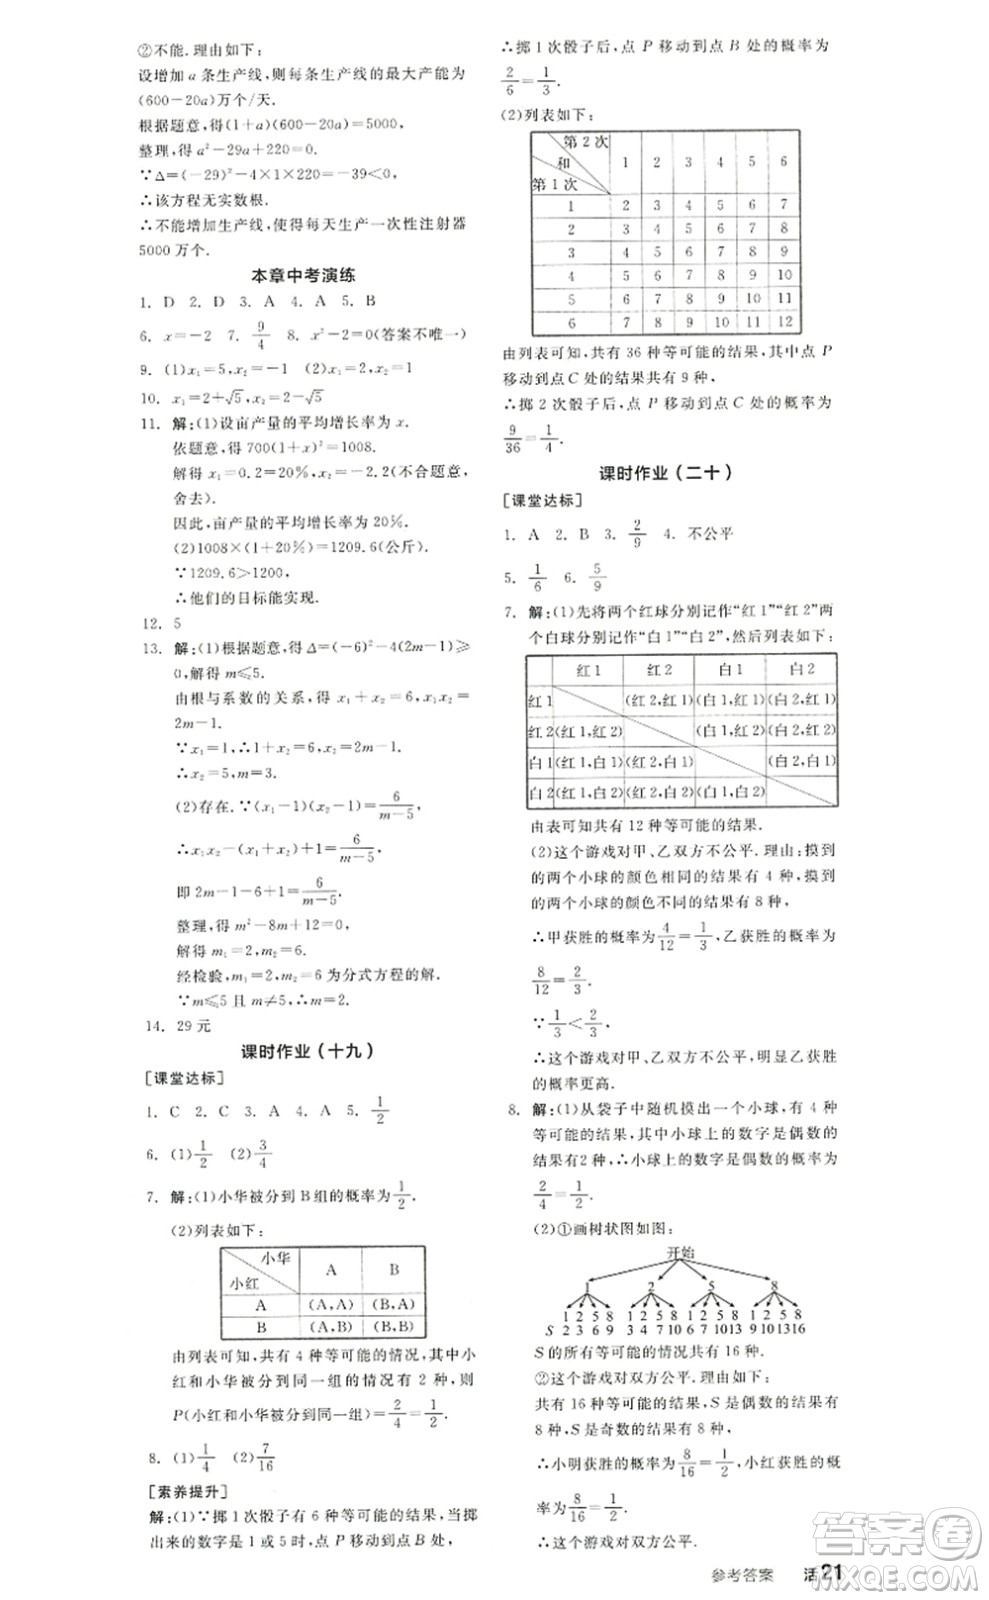 ②不能.理由如下:
设增加 a 条生产线,则每条生产线的最大产能为
(600-20a)万个/天.
根据题意,得(1+a)(600-20a)=5000,
整理,得 a²-29a+220=0.
∵Δ=(-29)²-4×1×220=-39<0,
∴该方程无实数根.
∴不能增加生产线,使得每天生产一次性注射器
5000 万个.
本章中考演练
1. D 2. D 3. A 4. A 5. B
6. x=-2 7. 9/4 8. x²-2=0(答案不唯一)
9. (1)x₁=5,x₂=-1 (2)x₁=x₂=1
10. x₁=2+√5,x₂=2-√5
11. 解:(1)设亩产量的平均增长率为 x.
依题意,得 700(1+x)²=1008.
解得 x₁=0.2=20%,x₂=-2.2(不合题意,
舍去).
因此,亩产量的平均增长率为 20%.
(2)1008×(1+20%)=1209.6(公斤).
∵1209.6>1200,
∴他们的目标能实现.
12. 5
13. 解:(1)根据题意,得 Δ=(-6)²-4(2m-1)≥
0,解得 m≤5.
由根与系数的关系,得 x₁+x₂=6,x₁x₂=
2m-1.
∵x₁=1,∴1+x₂=6,x₂=2m-1.
∴x₂=5,m=3.
(2)存在.∵(x₁-1)(x₂-1)=6/(m-5),
∴x₁x₂-(x₁+x₂)+1=6/(m-5),
即 2m-1-6+1=6/(m-5).
整理,得 m²-8m+12=0.
解得 m₁=2,m₂=6.
经检验,m₁=2,m₂=6 为分式方程的解.
∵m≤5 且 m≠5,∴m=2.
14. 29 元
课时作业(十九)
[课堂达标]
1. C 2. C 3. A 4. A 5. 1/2
6. (1)1/2 (2)3/4
7. 解:(1)小华被分到 B 组的概率为1/2.
(2)列表如下:
小华 小红 A B
A (A,A) (B,A)
B (A,B) (B,B)
由列表可知,共有 4 种等可能的情况,其中小
红和小华被分到同一组的情况有 2 种,则
P(小红和小华被分到同一组)=2/4=1/2.
8. (1)1/4 (2)7/16
[素养提升]
解:(1)∵掷 1 次骰子有 6 种等可能的结果,当掷
出来的数字是 1 或 5 时,点 P 移动到点 B 处,
∴掷 1 次骰子后,点 P 移动到点 B 处的概率为
2/6=1/3.
(2)列表如下:
第 2 次 和 第 1 次 1 2 3 4 5 6
1 2 3 4 5 6 7
2 3 4 5 6 7 8
3 4 5 6 7 8 9
4 5 6 7 8 9 10
5 6 7 8 9 10 11
6 7 8 9 10 11 12
由列表可知,共有 36 种等可能的结果,其中点 P
移动到点 C 处的结果共有 9 种,
∴掷 2 次骰子后,点 P 移动到点 C 处的概率为
9/36=1/4.
课时作业(二十)
[课堂达标]
1. A 2. B 3. 2/9 4. 不公平
5. 1/6 6. 5/9
7. 解:(1)先将两个红球分别记作“红 1”“红 2”两
个白球分别记作“白 1”“白 2”,然后列表如下:
红 1 红 2 白 1 白 2
红 1 (红 2,红 1) (白 1,红 1) (白 2,红 1)
红 2 (红 1,红 2) (白 1,红 2) (白 2,红 2)
白 1 (红 1,白 1) (红 2,白 1) (白 2,白 1)
白 2 (红 1,白 2) (红 2,白 2) (白 1,白 2)
由表可知共有 12 种等可能的结果.
(2)这个游戏对甲、乙双方不公平.理由:摸到
的两个小球的颜色相同的结果有 4 种,摸到
的两个小球的颜色不同的结果有 8 种,
∴甲获胜的概率为4/12=1/3,乙获胜的概率为
8/12=2/3.
∵1/3<2/3,
∴这个游戏对甲、乙双方不公平,明显乙获胜
的概率更高.
8. 解:(1)从袋子中随机摸出一个小球,有 4 种
等可能的结果,其中小球上的数字是偶数的
结果有2 种,∴小球上的数字是偶数的概率为
2/4=1/2.
(2)①画树状图如图:
开始
1 2 5 8
1 2 5 8 1 2 5 8 1 2 5 8 1 2 5 8
S 2 3 6 9 3 4 7 10 6 7 10 13 9 10 13 16
S 的所有等可能的情况共有 16 种.
②这个游戏对双方公平.理由如下:
共有 16 种等可能的结果,S 是偶数的结果有
8 种,S 是奇数的结果有 8 种,
∴小明获胜的概率为8/16=1/2,小红获胜的概
率为8/16=1/2.
∴这个游戏对双方公平.
参考答案 活 21
答案卷
MXQE.COM